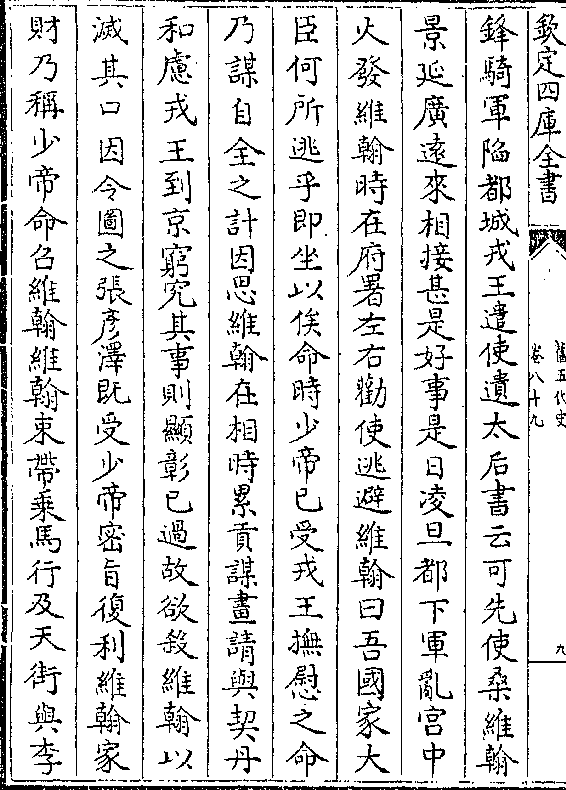 欽定四庫全書
舊五代史
卷八十九
九
鋒騎軍陷都城戎王遣使遺太后書云可先使桑維翰
景延廣遠來相接甚是好事是日凌旦都下軍亂宫中
火發維翰時在府署左右勸使逃避維翰曰吾國家大
臣何所逃乎即坐以俟命時少帝已受戎王撫慰之命
乃謀自全之計因思維翰在相時累貢謀畫請與契丹
和慮戎王到京窮究其事則顯彰已過故欲殺維翰以
滅其口因令圖之張彦澤既受少帝密旨復利維翰家
財乃稱少帝命召維翰維翰束帶乘馬行及天街與李